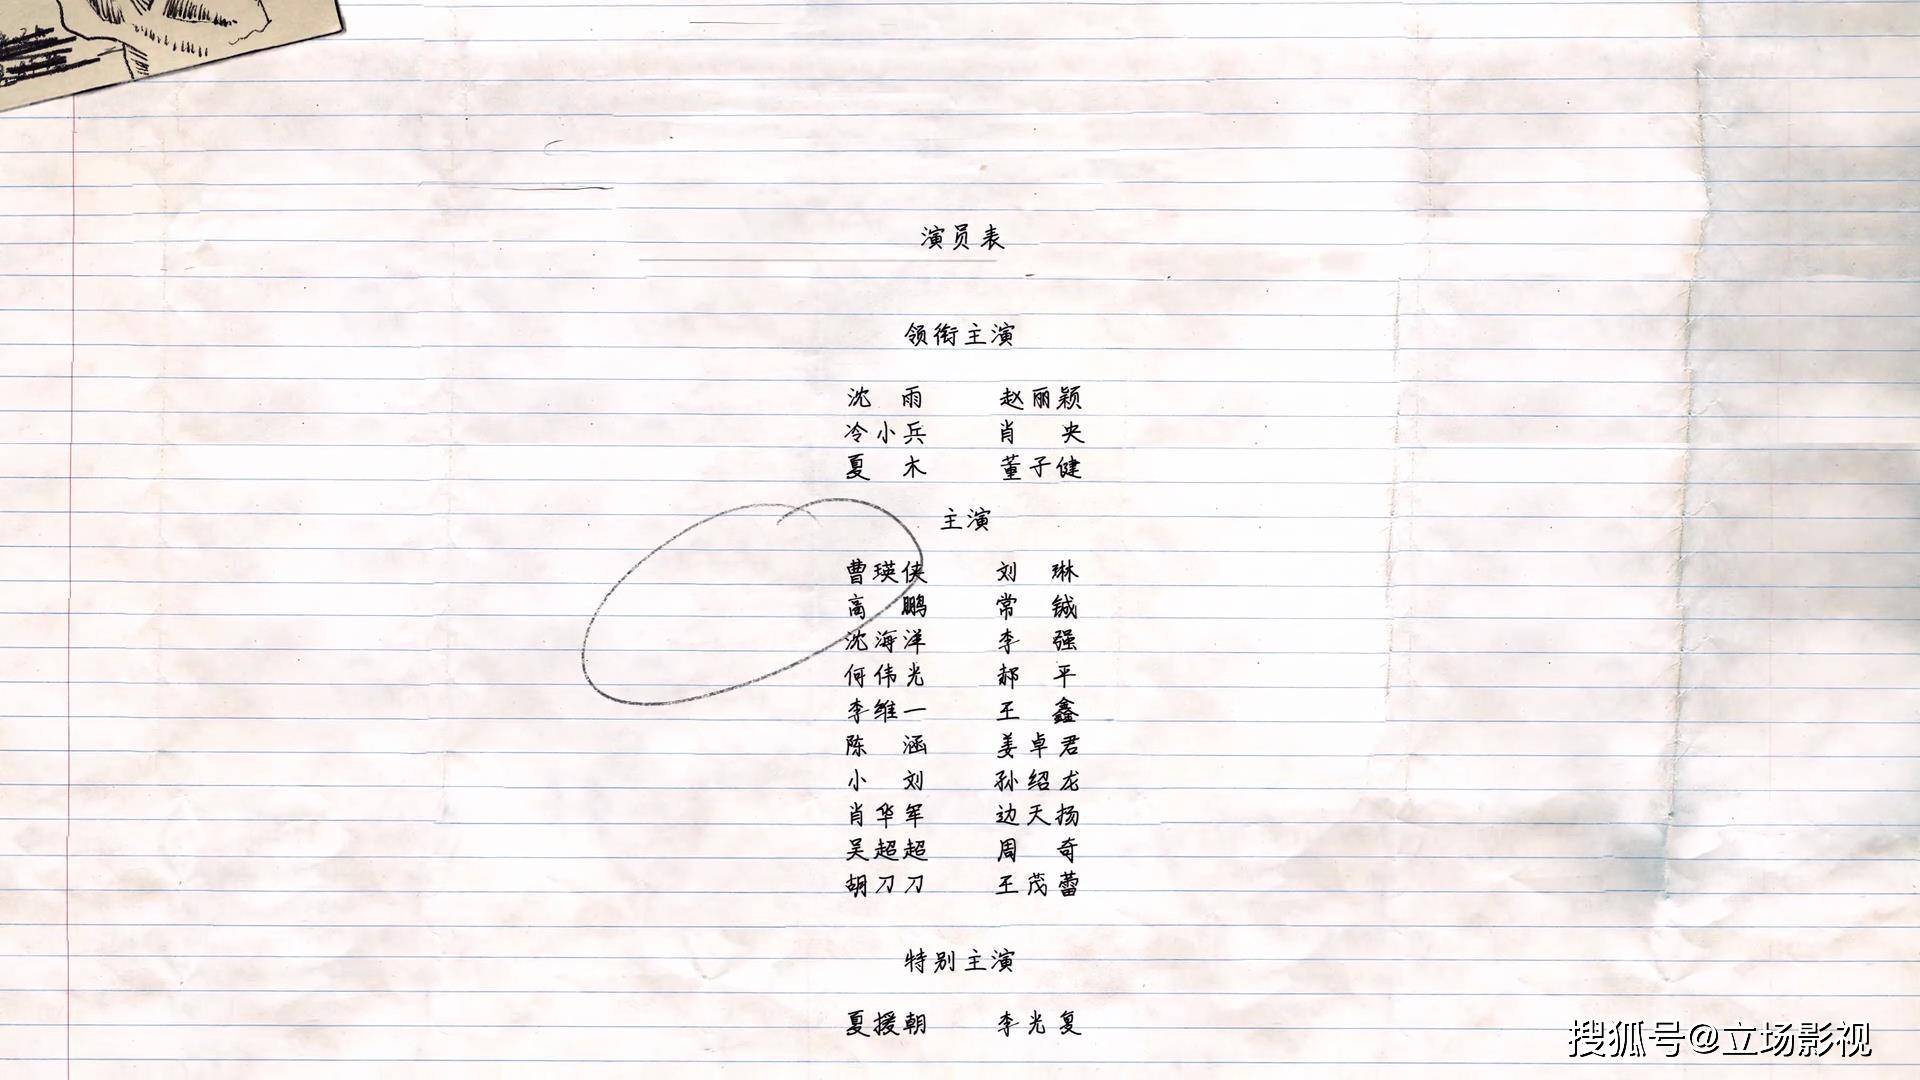 演员表
领衔主演
沈 雨 赵丽颖
冷小兵 肖 央
夏 木 董子健
主演
曹瑛侠 刘 琳
高 鹏 常 铖
沈海洋 李 强
何伟光 郝 平
李维一 王 鑫
陈 涵 姜卓君
小 刘 孙绍龙
肖华军 边天扬
吴超超 周 奇
胡刀刀 王茂蕾
特别主演
夏援朝 李光复
搜狐号@立场影视